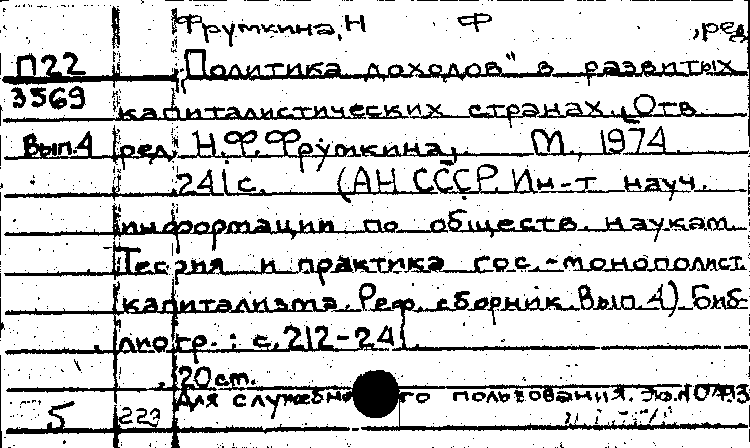 Фрумкина, Н Ф , ред.
П22 „Политика доходов" в развитых
3569 капиталистических странах. Отв.
Вып.4 ред. Н.Ф.Фрумкина, М., 1974.
241 с. (АН СССР. Ин-т науч.
информации по обществ. наукам.
Теория и практика гос.-монополист.
капитализма. Реф. сборник. Вып. 4) Биб-
лиогр.: с. 212-241.
20 см.
Для служебного пользования.
5 223